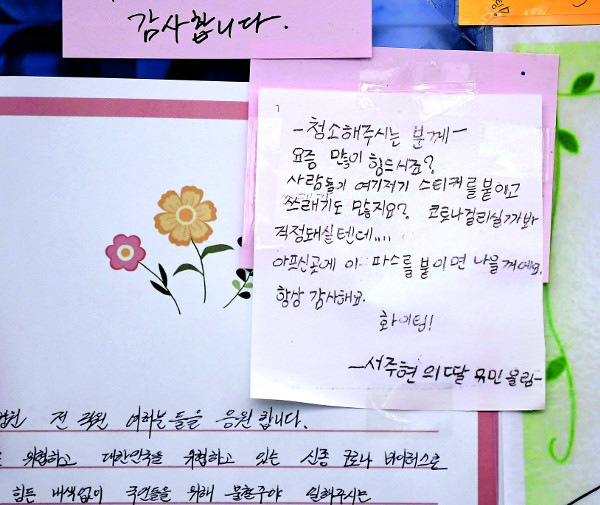 감사합니다.
-청소해주시는 분께-
요즘 많이 힘드시죠?
사람들이 여기저기 스티커를 붙이고
쓰래기도 많지요? 코로나걸리실까봐
걱정돼실텐데....
아프신곳에 이 파스를 붙이면 나을꺼예요.
항상 감사해요.
화이팅!
-서주현의 딸 올림-
전 직원 여러분들을 응원합니다.
위협하고 대한민국을 위협하고 있는 신종 코로나 바이러스로
힘든 내색없이 국민들을 위해 불철주야 일해주시는